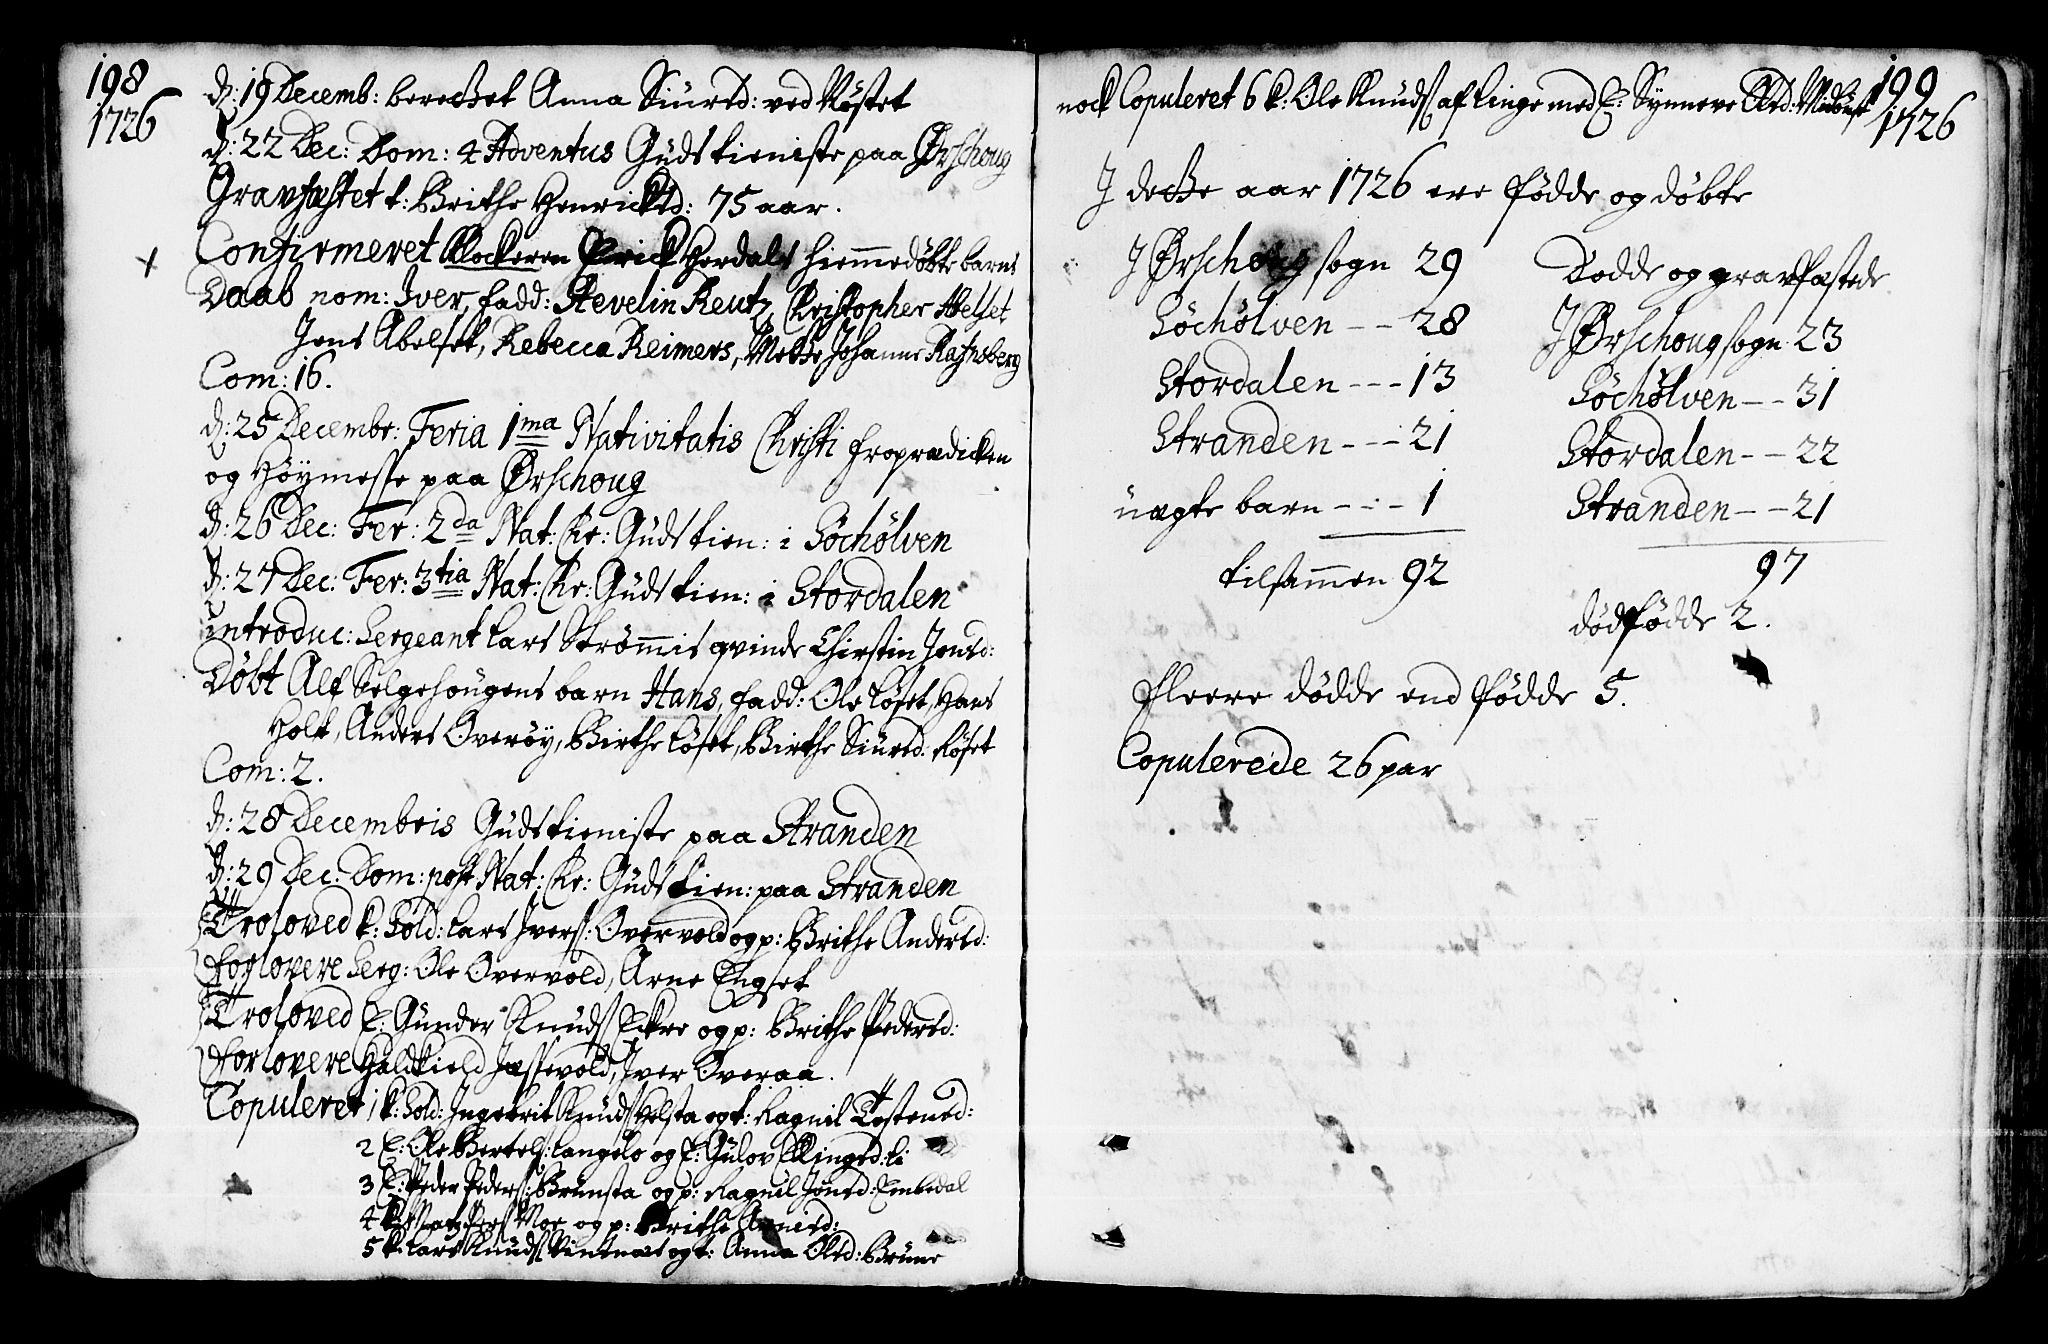 198
1726
d: 19 Decemb: berettet Anna Siurtd: ved Røstet
d: 22 Dec: Dom: 4 Adventus Gudstieniste paa Ørschoug
Gravfæstet k: Birthe Henrichtd: 75 aar.
Confirmeret Klockeren Erick Herdals hiemmedøbte barns
Daab nom: Iver, fadd: Stevelin Reutz, Christopher Abelset
Jens Abelset, Rebecca Reimers, Mette Johanne Rafnsberg
Com: 16.
d: 25 Decembr: Feria 1ma Nativitatis Christi froprædicken
og Høymesse paa Ørschoug
d: 26 Dec: Fer: 2da Nat: Chr: Gudstien: i Søchølven
d: 27 Dec: Fer: 3tia Nat: Chr: Gudstien: i Stordalen
introduc: Sergeant Lars Strømmis qvinde Chirstin Jensd:
Døbt Alf Selgehougens barn Hans, fadd: Ole Løset, Hans
Holt, Anders Overøy, Birthe Løset, Birthe Siurtd: Løset
Com: 2.
d: 28 Decembris Gudstieniste paa Stranden
d: 29 Dec: Dom: post Nat: Chr: Gudstien: paa Stranden
Troloved k: Sold: Lars Ivers: Overvold og p: Birthe Andersd:
Forlovere Serg: Ole Overvold, Arne Engset
Troloved E: Gunder Knuds Eckre og p: Brithe Pedersd:
Forlovere Haldkield Jssevold, Iver Overaa.
Copuleret 1 k: Sold: Ingebrit Knuds Helsta og p: Ragnil Tostensd:
2 E: Ole Bertels: Langelo og E: Gulov Ellingsd: Li
3 E: Peder Peders: Brunsta og p: Ragnil Jonsd: Embdal
4 Pers Moe og p: Brithe
5 k: Lars Knuds Vintnæs og p: Anna Olsd: Brune
199
1726
nock Copuleret 6 k: Ole Knuds af Linge med E: Synneve
J dette aar 1726 ere fødde og døbte
J Ørschoug sogn 29
Søchølven - - 28
Stordalen - - - 13
Stranden - - - 21
uægte barn - - - 1
tilsammen 92
Dødde og gravfæstede
J Ørschoug sogn 23
Søchølven - - 31
Stordalen - - 22
Stranden - - 21
97
dødfødde 2.
fleere dødde end fødde 5.
Copulerede 26 par